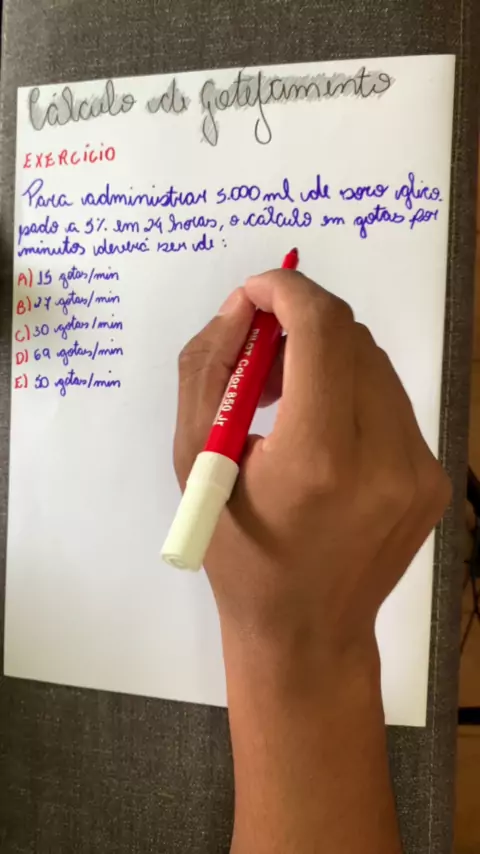 Cálculo de gotejamento
EXERCÍCIO
Para administrar 5.000 ml de soro glico
sado a 5% em 24 horas, o cálculo em gotas por
minutos deverá ser de:
A) 15 gotas/min
B) 27 gotas/min
C) 30 gotas/min
D) 69 gotas/min
E) 50 gotas/min
PILOT Color 850 Jr